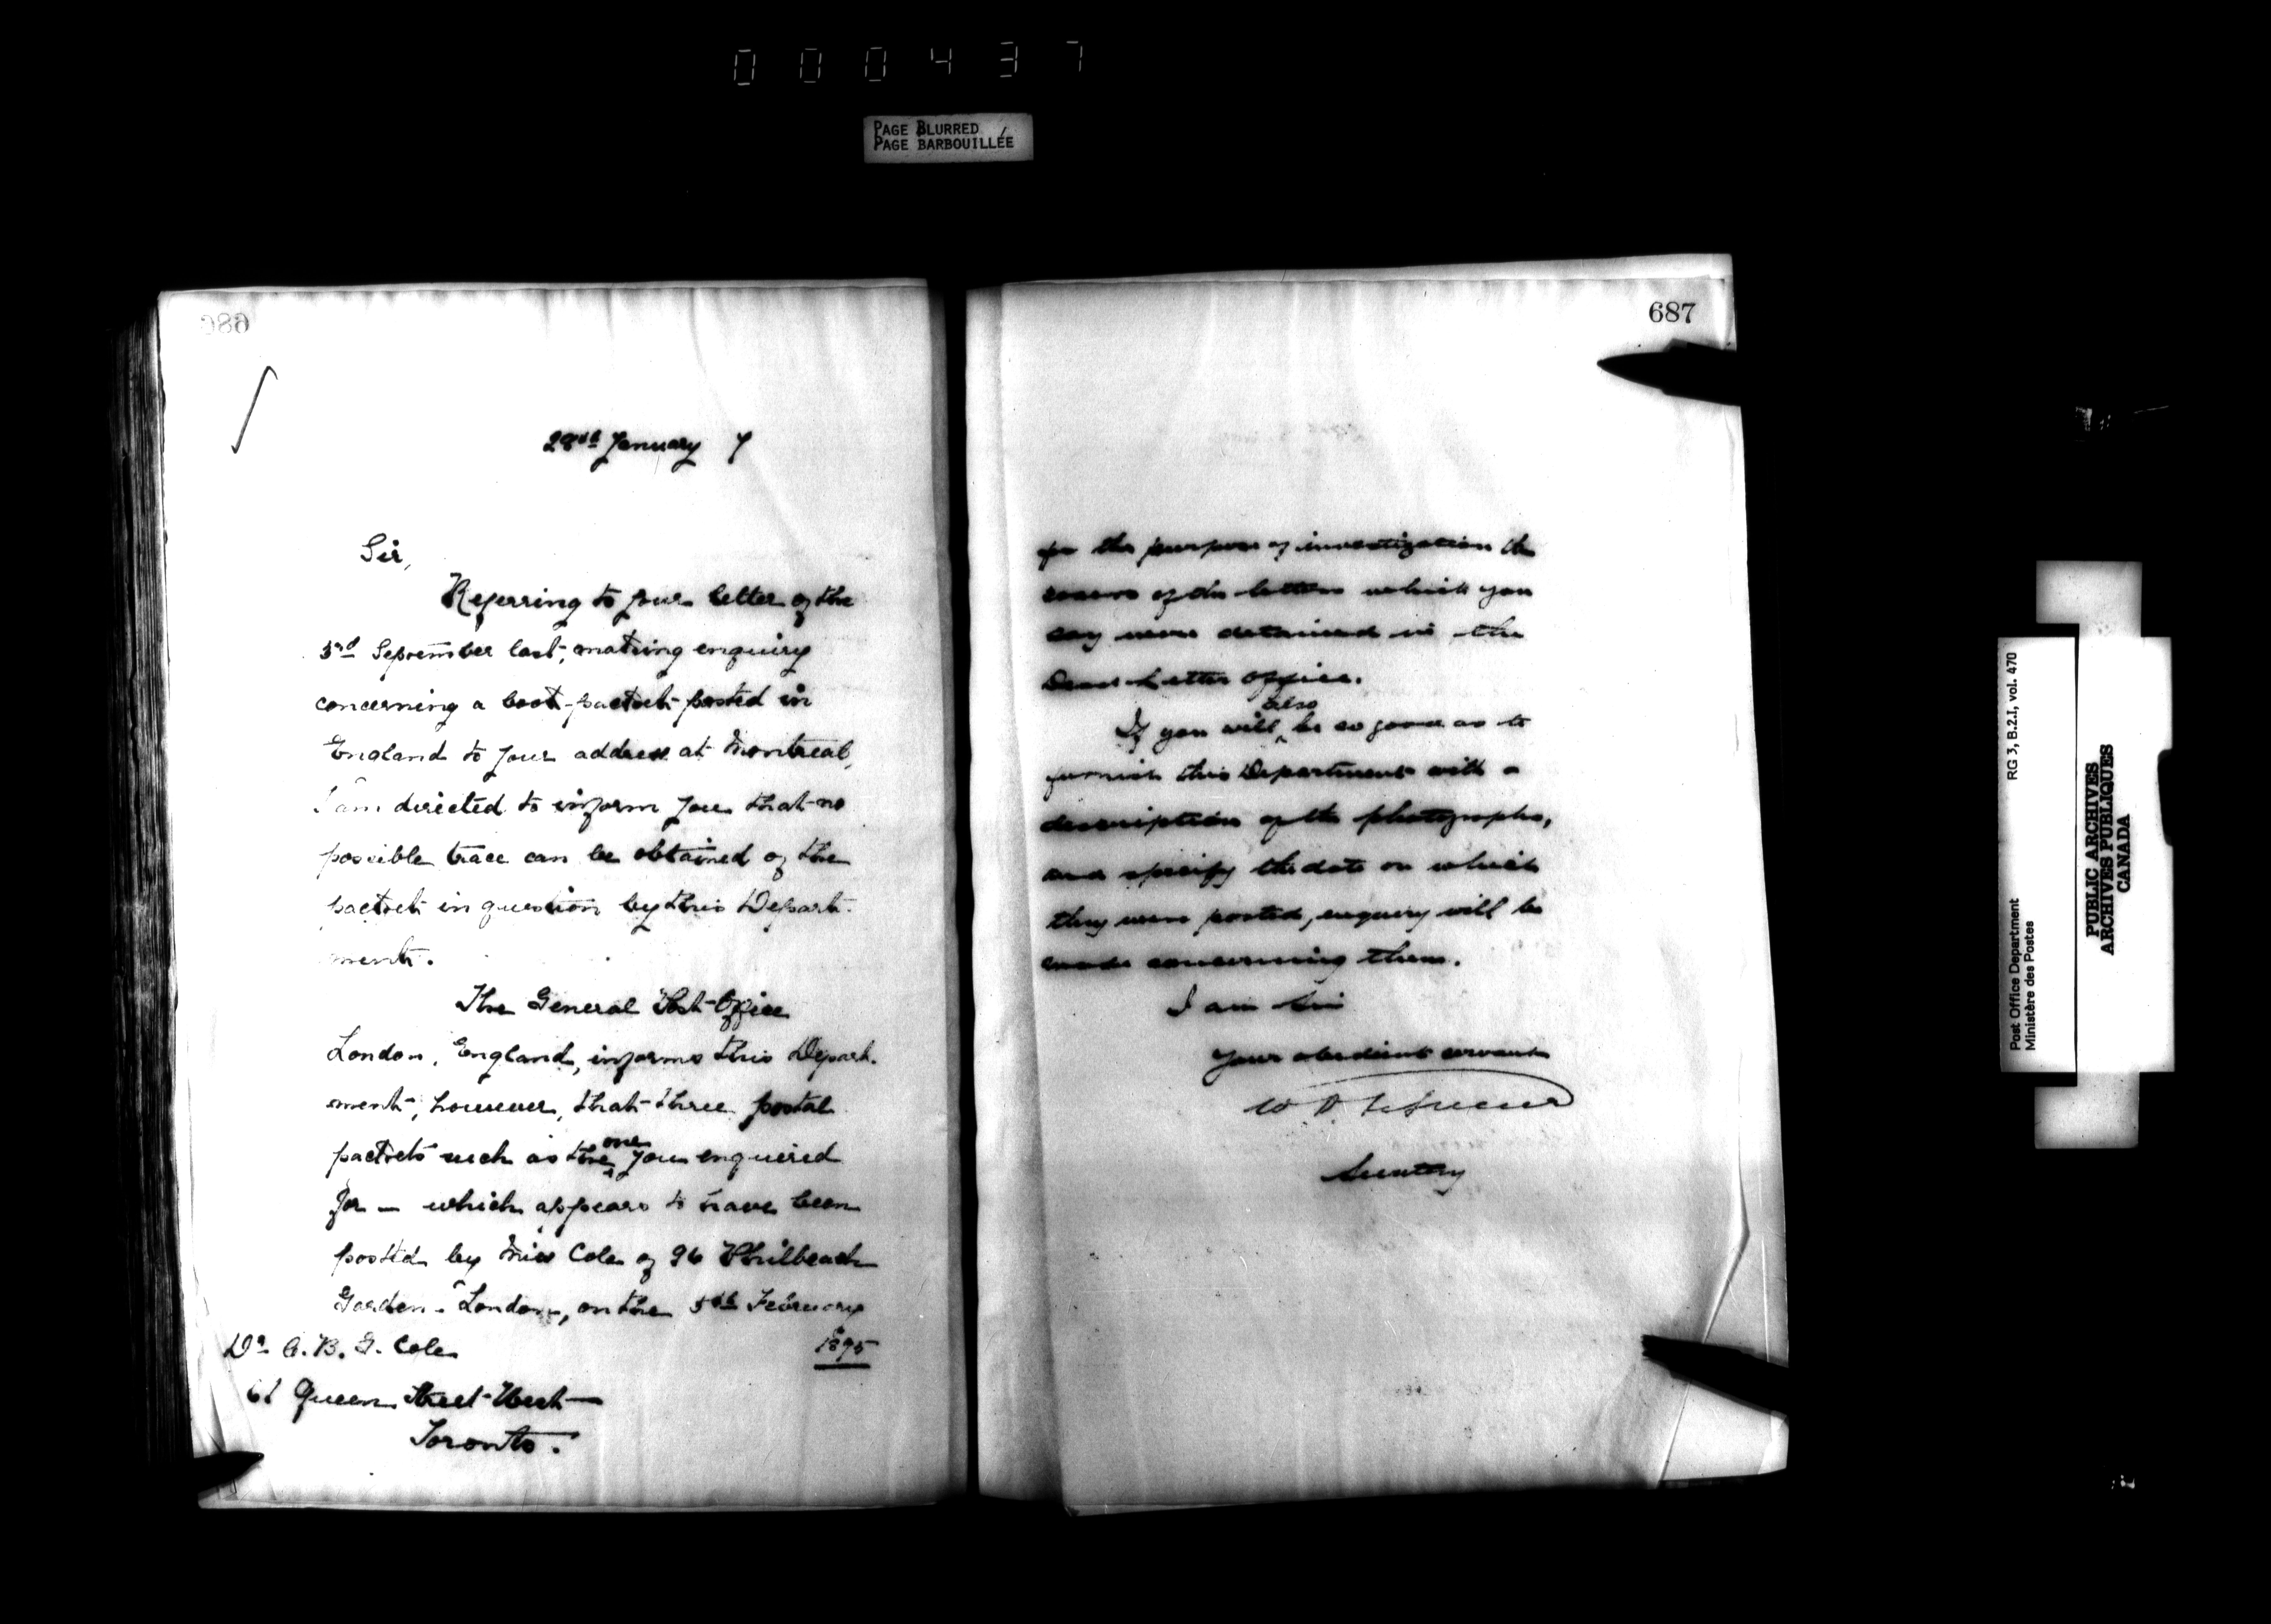 000437
PAGE BLURRED
PAGE BARBOUILLÉE
686
28th January 7
Sir,
Referring to your letter of the
3rd September last, making enquiry
concerning a book-packet posted in
England to your address at Montreal,
I am directed to inform you that no
possible trace can be obtained of the
packet in question by this Depart-
ment.
The General Post-Office
London, England, informs this Depart-
ment, however, that three postal
packets such as the one you enquired
for — which appears to have been
posted by Miss Cole of 96 Philbeach
Garden - London, on the 5th February
1895
Dr A. B. G. Cole
61 Queen Street West
Toronto.
687
for the purpose of investigation the
covers of the letters which you
say were detained in the
Dead Letter Office.
If you will also be so good as to
furnish this Department with a
description of the photographs,
and specify the date on which
they were posted, enquiry will be
made concerning them.
I am Sir
Your obedient servant
W D LeSueur
Secretary
RG 3, B.2.I, vol. 470
Post Office Department
Ministère des Postes
PUBLIC ARCHIVES
ARCHIVES PUBLIQUES
CANADA